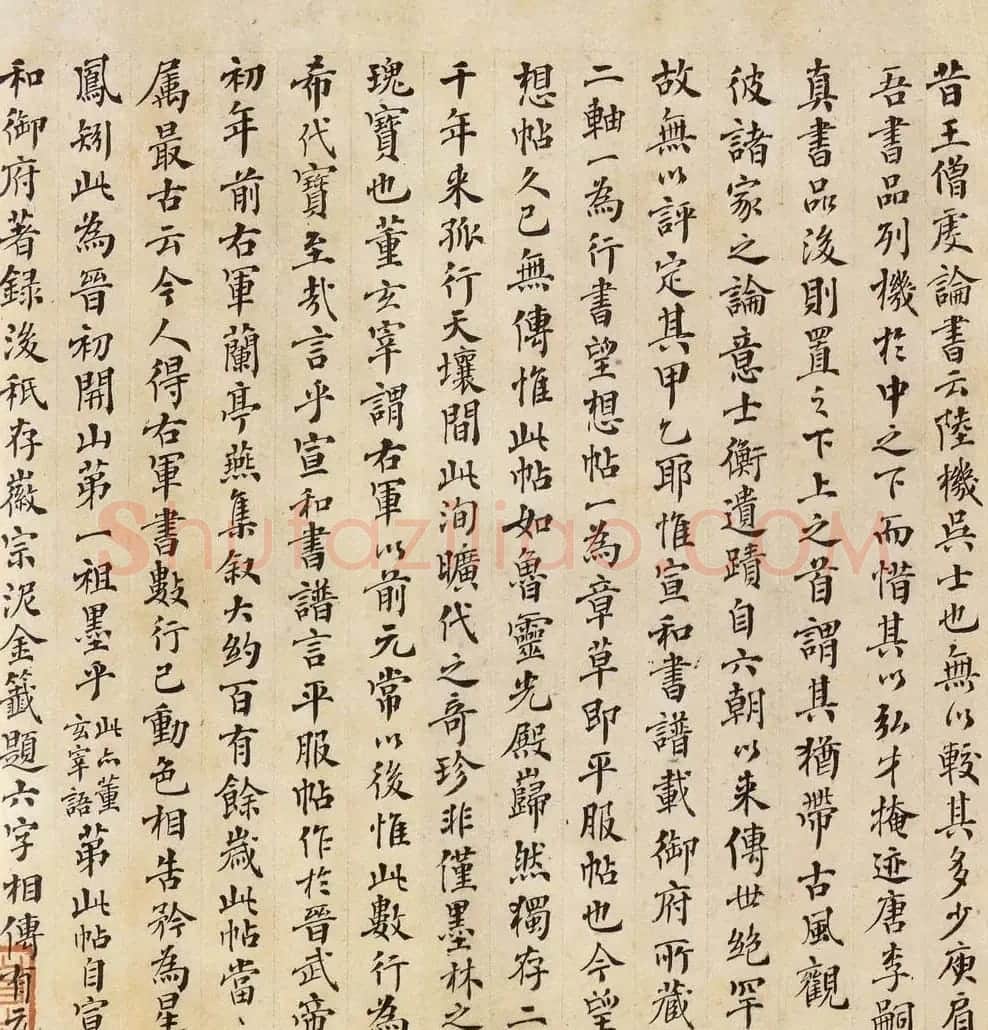 昔王僧虔論書云陸機吳士也無以較其多少庾肩
吾書品列機於中之下而惜其以弘才掩迹唐李嗣
真書品後則置之下上之首謂其猶帶古風觀
彼諸家之論意士衡遺蹟自六朝以来傳世絕罕
故無以評定其甲乙耶惟宣和書譜載御府所藏
二軸一為行書望想帖一為章草即平服帖也今望
想帖久已無傳惟此帖如魯靈光殿巋然獨存二
千年来孤行天壤間此洵曠代之奇珍非僅墨林之
瑰寶也董玄宰謂右軍以前元常以後惟此數行為
希代寶至哉言乎宣和書譜言平服帖作於晉武帝
初年前右軍蘭亭燕集叙大約百有餘歲此帖當、
属最古云今人得右軍書數行已動色相告矜為星
鳳矧此為晉初開山第一祖墨乎此亦董玄宰語第此帖自宣
和御府著錄後秖存徽宗泥金籤題六字相傳有元
Shufaziliao.COM